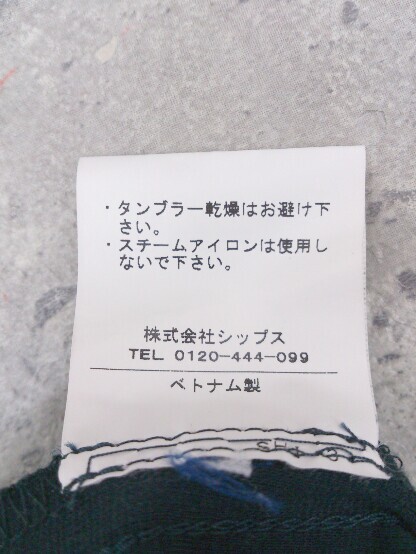 ・タンブラー乾燥はお避け下
さい。
・スチームアイロンは使用し
ないで下さい。
株式会社シップス
TEL 0120-444-099
ベトナム製